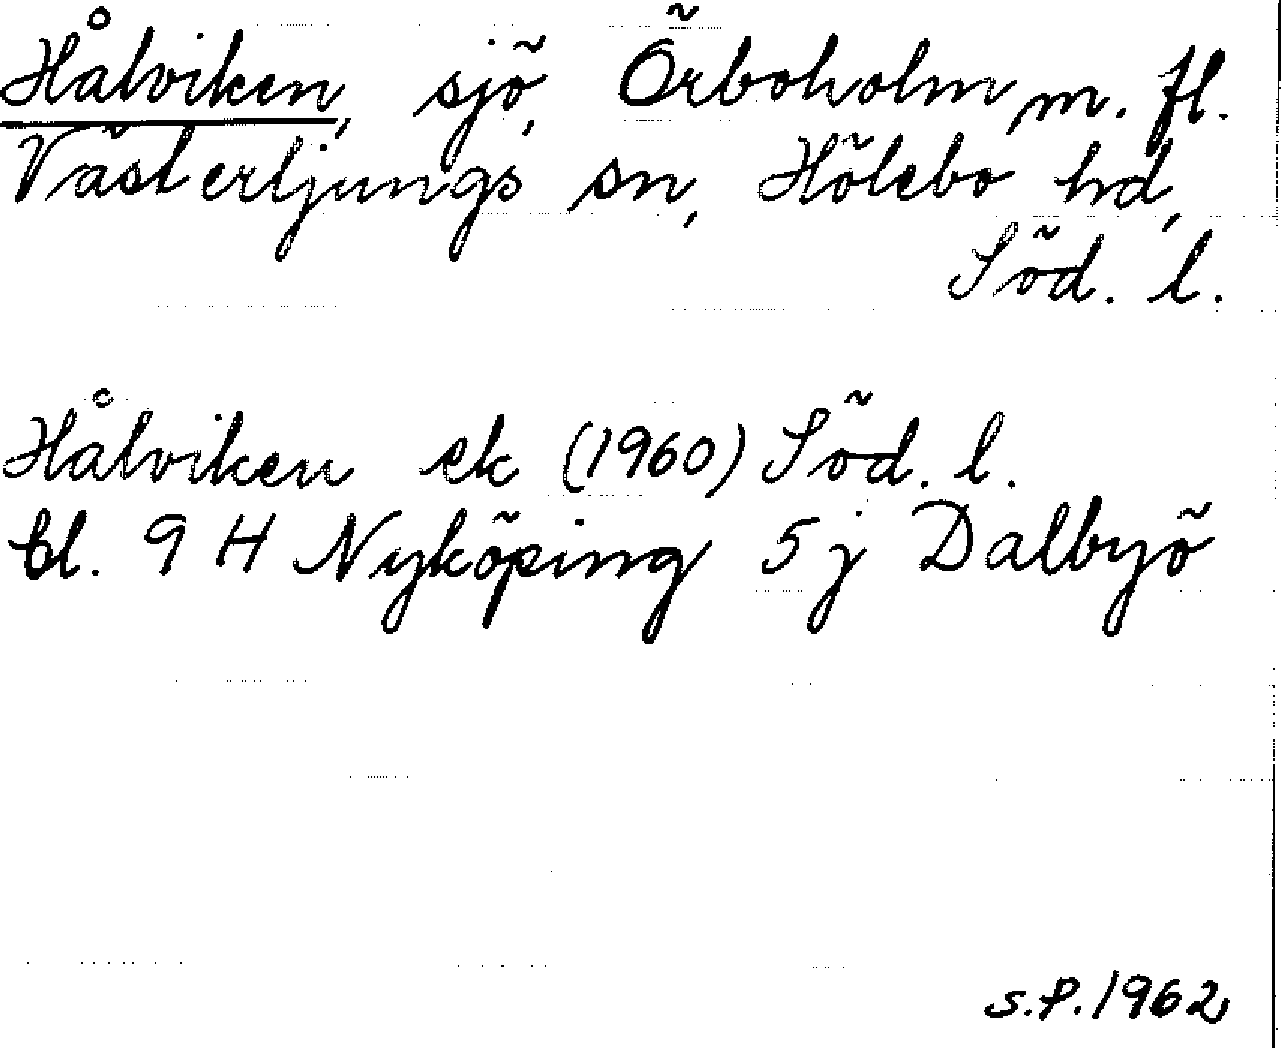 Hålviken, sjö, Örboholm m. fl.
Västerljungs sn, Hölebo hd,
Söd. l.
Hålviken ek (1960) Söd. l.
bl. 9 H Nyköping 5 j Dalbyö
S.P. 1962